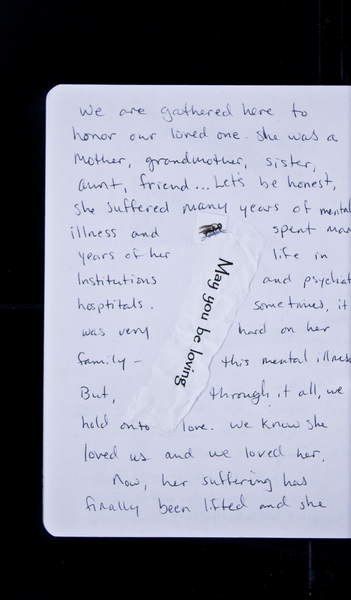 We are gathered here to
honor our loved one. She was a
Mother, grandmother, sister,
aunt, friend... Let's be honest,
she suffered many years of mental
illness and spent man
years of her life in
Institutions and psychiat
hosptitals. sometimes, it
was very hard on her
family - this mental illness
But, through it all, we
hold onto love. We know she
loved us and we loved her.
Now, her suffering has
finally been lifted and she
May you be loving